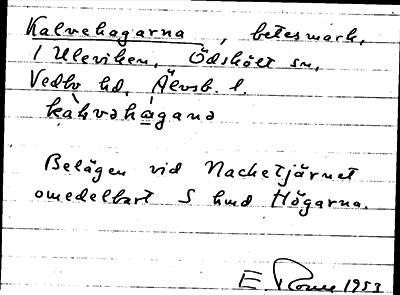 Kalvehagarna, betesmark,
1 Uleviken, Ödskölt sn,
Vedbo hd, Älvsb. l.
kàhvəhàganə
Belägen vid Nacketjärnet
omedelbart S hmd Högarna.
E. 1953